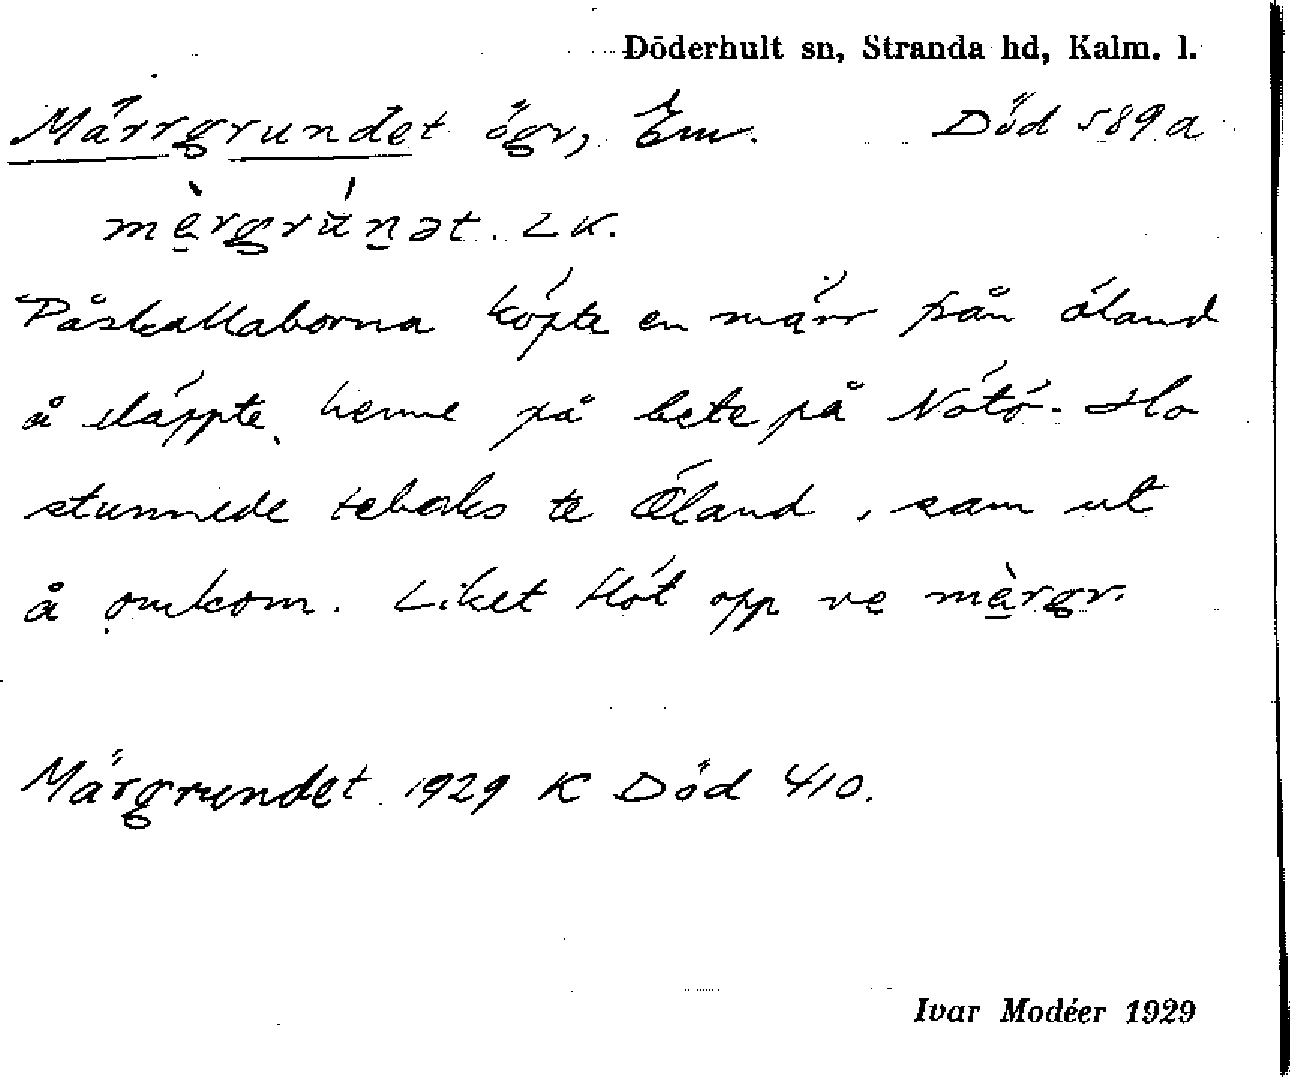 Döderhult sn, Stranda hd, Kalm. l.
Märrgrundet ögr, Em. Död 589 a
mèrgrúnət. LK.
Påskallaborna köpte en märr från öland
å släppte henne på bete på Nötö. Ho
stunnede tebaks te Öland, sam ut
å omkom. Liket flöt opp ve mèrgr.
Märgrundet 1929 K Död 410.
Ivar Modéer 1929